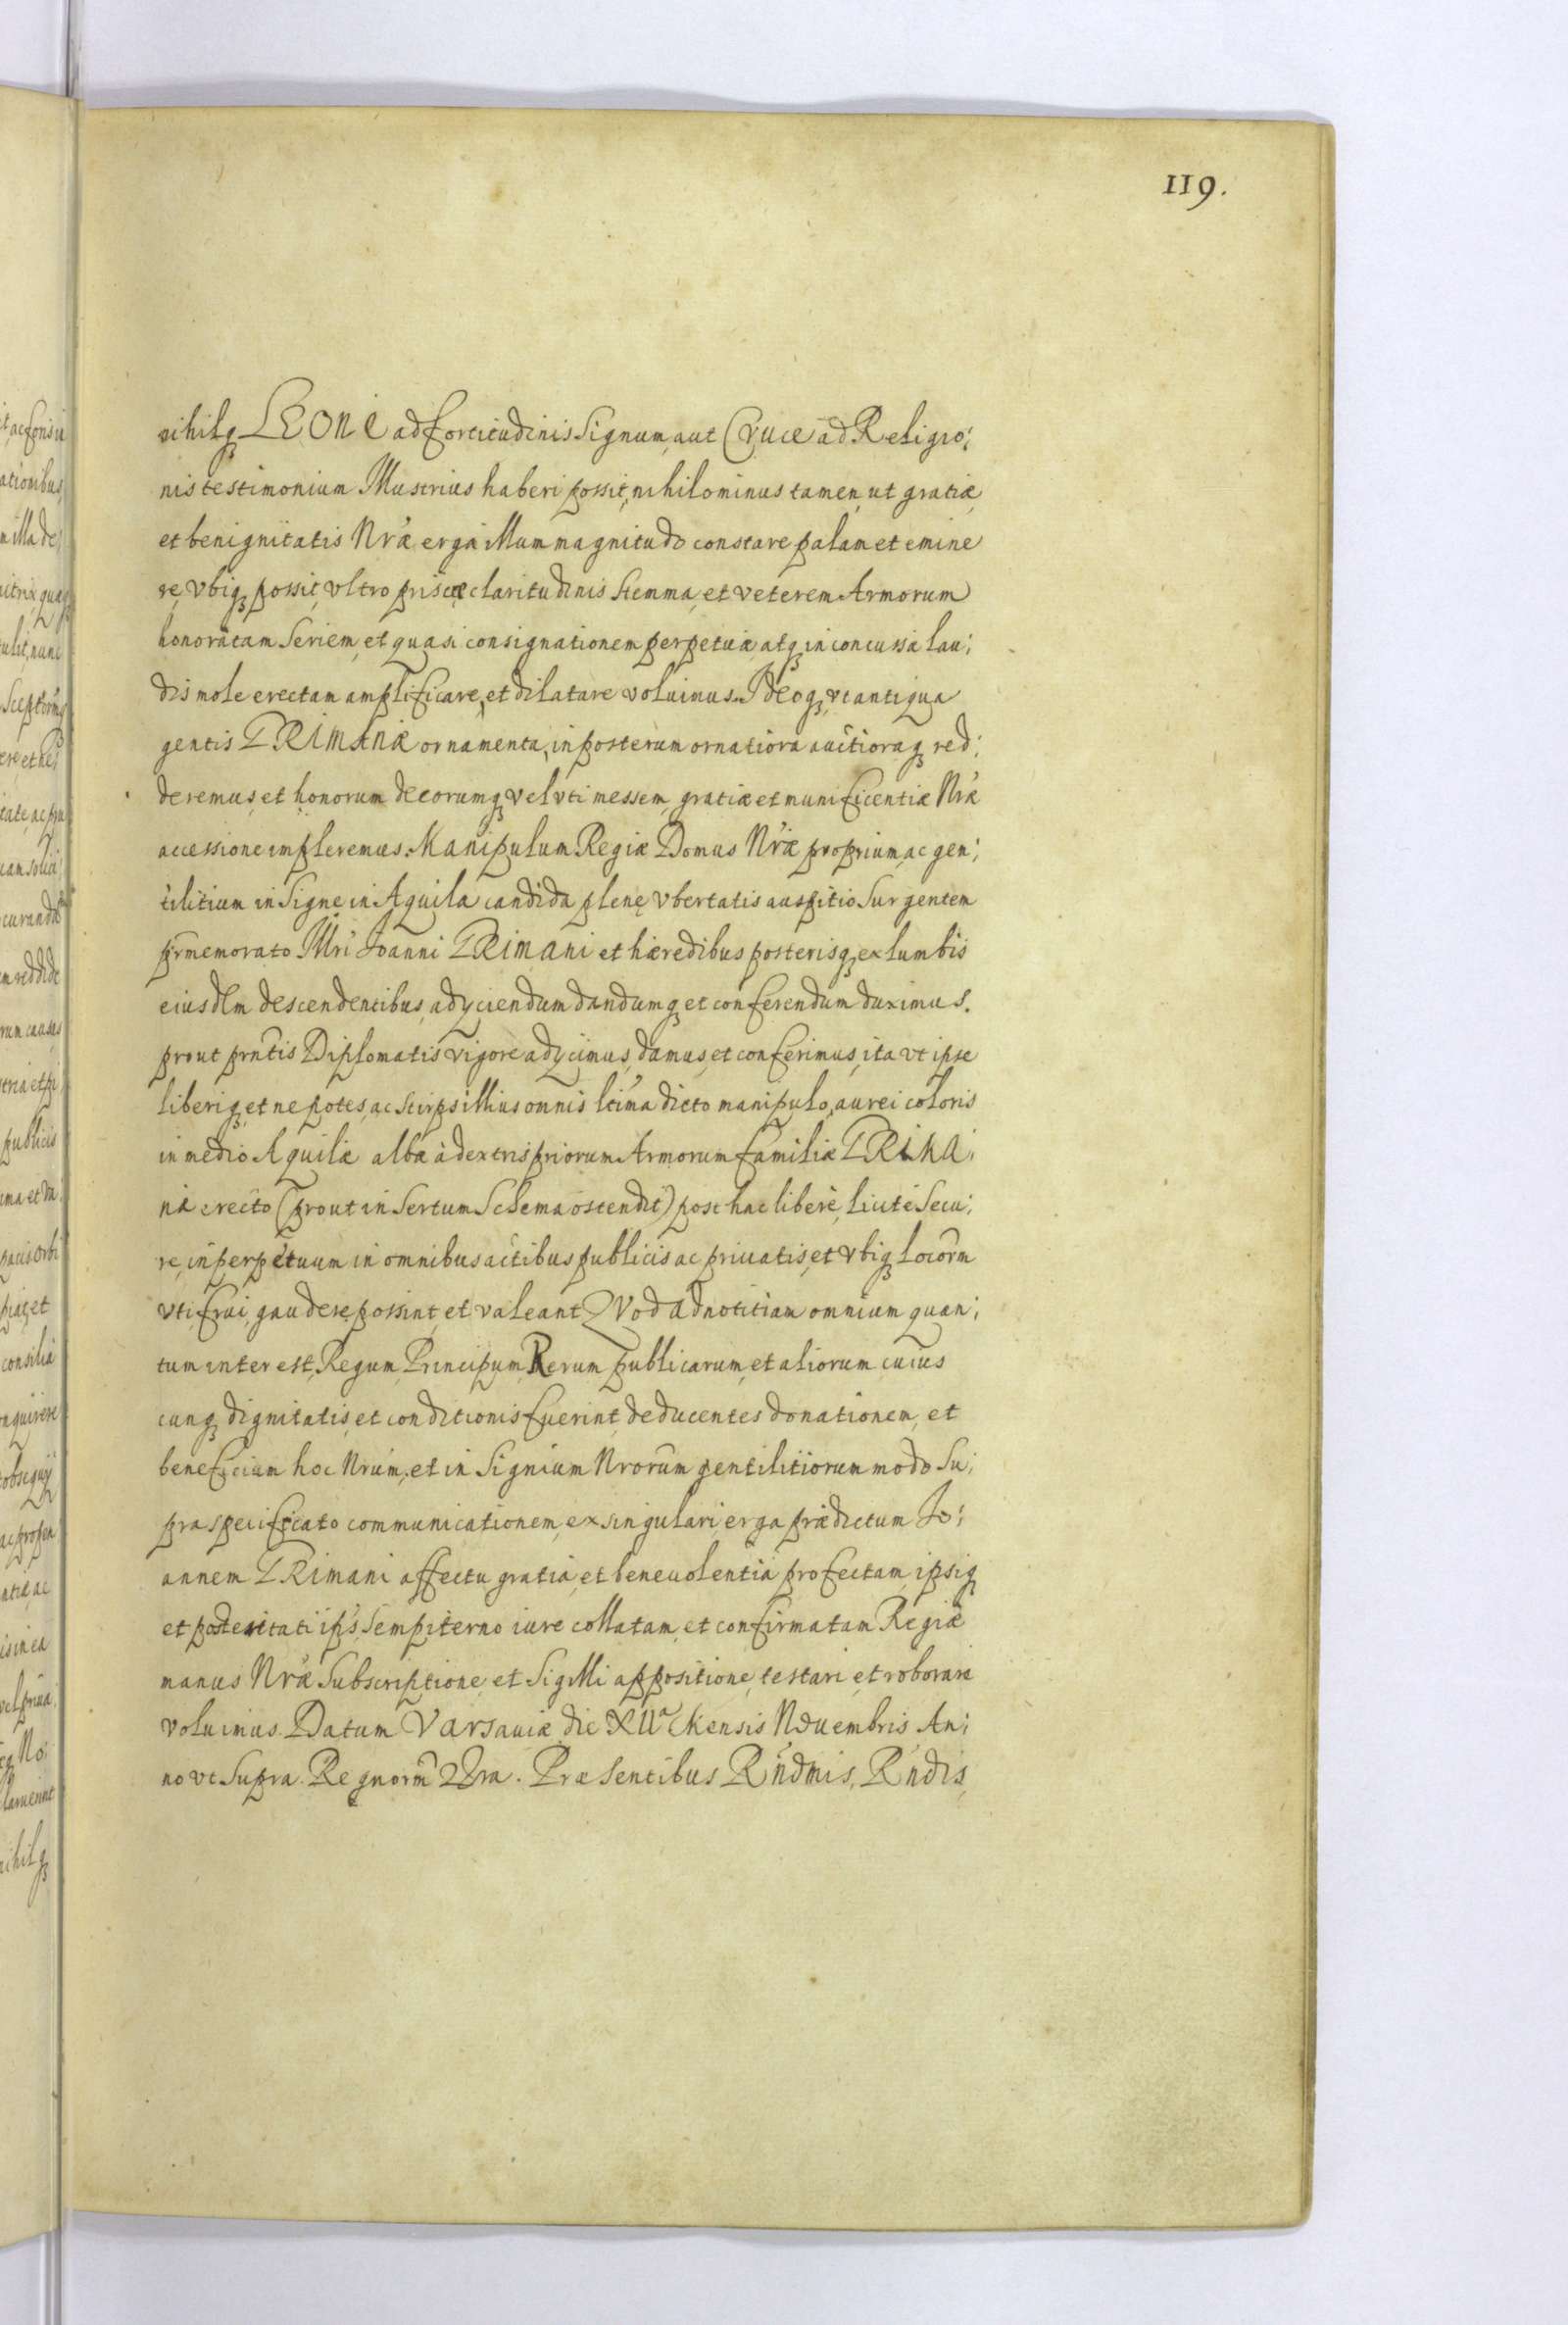 119.
nihilq LEONE ad fortitudinis Signum, aut Cruce ad Religio;
nis testimonium Illustrius haberi possit, nihilominus tamen, ut gratiæ
et benignitatis Nræ erga illum magnitudo constare palam et emine
re, vbiq possit, vltro priscæ claritudinis stemma, et veterem Armorum
honoratam Seriem, et quasi consignationem perpetua, atq inconcussa lau;
dis mole erectam amplificare, et dilatare voluimus. Ideoq, vt antiqua
gentis PRIMANÆ ornamenta, in posterum ornatiora auctioraq red;
deremus, et honorum decorumq velvti messem, gratiæ et munificentiæ Nræ
accessione impleremus. Manipulum Regiæ Domus Nræ proprium, ac gen;
tilitium insigne in Aquila candida plenę vbertatis auspitio Surgentem
prmemorato Illri Ioanni PRIMANI et hæredibus posterisq, ex lumbis
eiusdm descendentibus, adyciendum dandumq et conferendum duximus.
prout prntis Diplomatis vigore adycimus, damus, et conferimus, ita vt ipse
liberiq, et nepotes, ac stirps illius omnis ltima dicto manipulo, aurei coloris
in medio Aquilæ albæ à dextris priorum Armorum familiæ PRIMA;
næ erecto (prout insertum Schema ostendit) post hac liberè, licitè Secu;
re, in perpetuum in omnibus actibus publicis ac priuatis, et vbiq locorm
vti, frui, gaudere possint, et valeant. Quod ad notitiam omnium quan;
tum interest, Regum, Principum, Rerum publicarum, et aliorum cuius
cunq dignitatis, et conditionis fuerint, deducentes donationem, et
beneficium hoc Nrum, et insignium Nrorum gentilitiorum modo Su;
pra specificato communicationem, ex singulari erga prædictum Jo;
annem PRIMANI affectu gratia, et beneuolentia profectam, ipsiq
et posteritati ips, Sempiterno iure collatam, et confirmatam Regiæ
manus Nræ Subscriptione, et Sigilli appositione, testari, et roborare
voluimus. Datum Varsauiæ die XIIa Mensis Nouembris An;
no vt Supra. Regnorm Nra. Præsentibus Rndmis, Rndis,